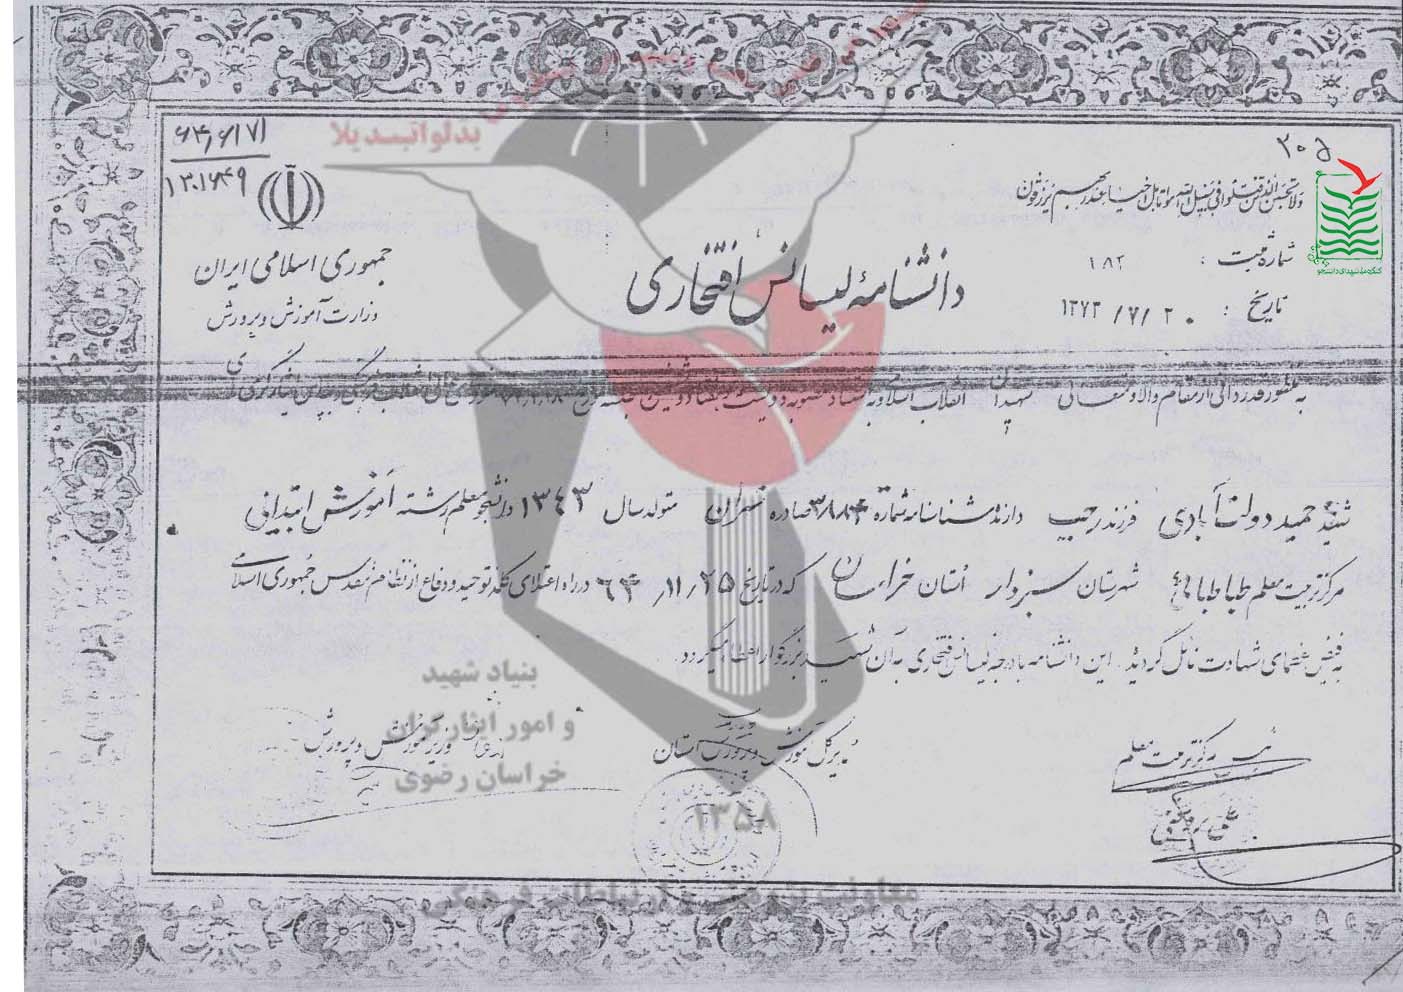 ۲۰۵
۶۴٫۶/۷۱
۱۳۰۱۶۴۹
ولا تحسبن الذین قتلوا فی سبیل الله امواتا بل احیاء عند ربهم یرزقون
شماره ثبت : ۱۸۲
تاریخ : ۱۳۷۳/۷/۲۰
جمهوری اسلامی ایران
وزارت آموزش و پرورش
دانشنامه لیسانس افتخاری
کنگره ملی شهدای دانشجو
به منظور قدردانی از مقام والا و متعالی شهیدان انقلاب اسلامی و به استناد مصوبه دویست و هفتاد و جلسه
شهید حمید دولت آبادی فرزند رجب دارنده شناسنامه شماره ۳۸۸۴ صادره تهران متولد سال ۱۳۴۳ دانشجو معلم رشته آموزش ابتدایی
مرکز تربیت معلم طباطبائی شهرستان سبزوار استان خراسان که در تاریخ ۶۴٫۱۱٫۲۵ در راه اعتلای کلمه توحید و دفاع از نظام مقدس جمهوری اسلامی
به فیض عظمای شهادت نائل گردید. این دانشنامه با درجه لیسانس افتخاری به آن شهید بزرگوار اعطا میگردد.
مرکز تربیت معلم
مدیرکل آموزش و پرورش استان
وزیر آموزش و پرورش
بنیاد شهید
و امور ایثارگران
خراسان رضوی
۱۳۵۸
معاونت پژوهش و ارتباطات فرهنگی